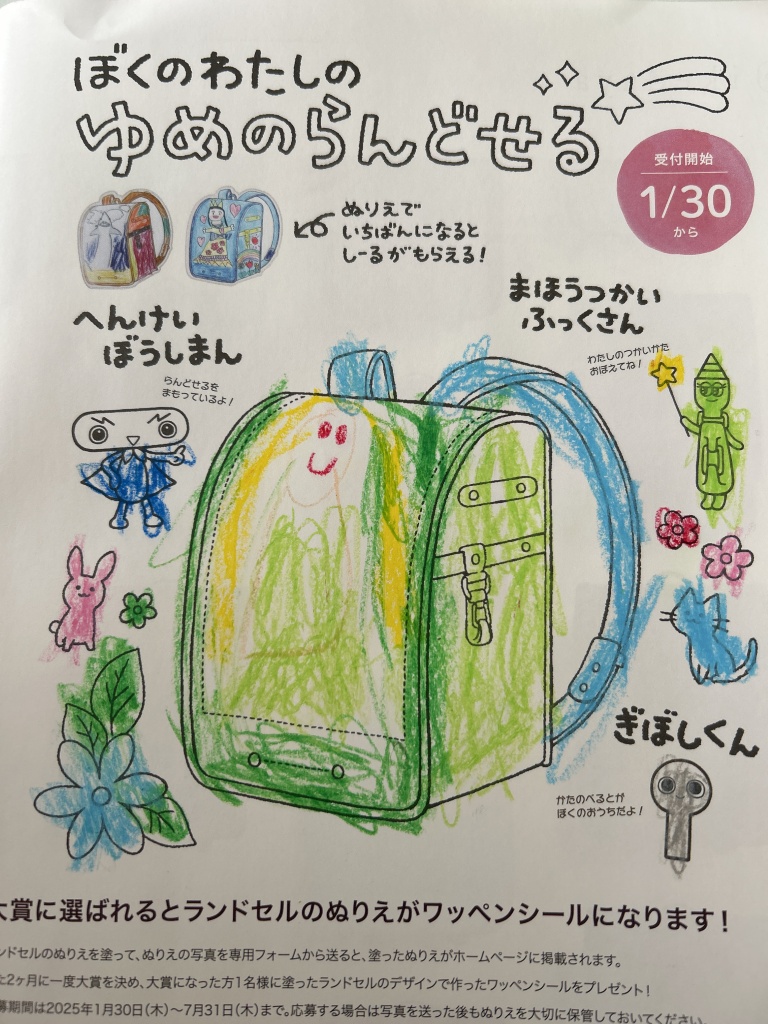 ぼくのわたしの
ゆめのらんどせる
受付開始
1/30
から
ぬりえで
いちばんになると
しーるがもらえる!
へんけい
ぼうしまん
らんどせるを
まもっているよ!
まほうつかい
ふっくさん
わたしのつかいかた
おぼえてね!
ぎぼしくん
かたのべるとが
ぼくのおうちだよ!
大賞に選ばれるとランドセルのぬりえがワッペンシールになります!
ンドセルのぬりえを塗って、ぬりえの写真を専用フォームから送ると、塗ったぬりえがホームページに掲載されます。
た2ヶ月に一度大賞を決め、大賞になった方1名様に塗ったランドセルのデザインで作ったワッペンシールをプレゼント!
募期間は2025年1月30日(木)~7月31日(木)まで。応募する場合は写真を送った後もぬりえを大切に保管しておいてください。